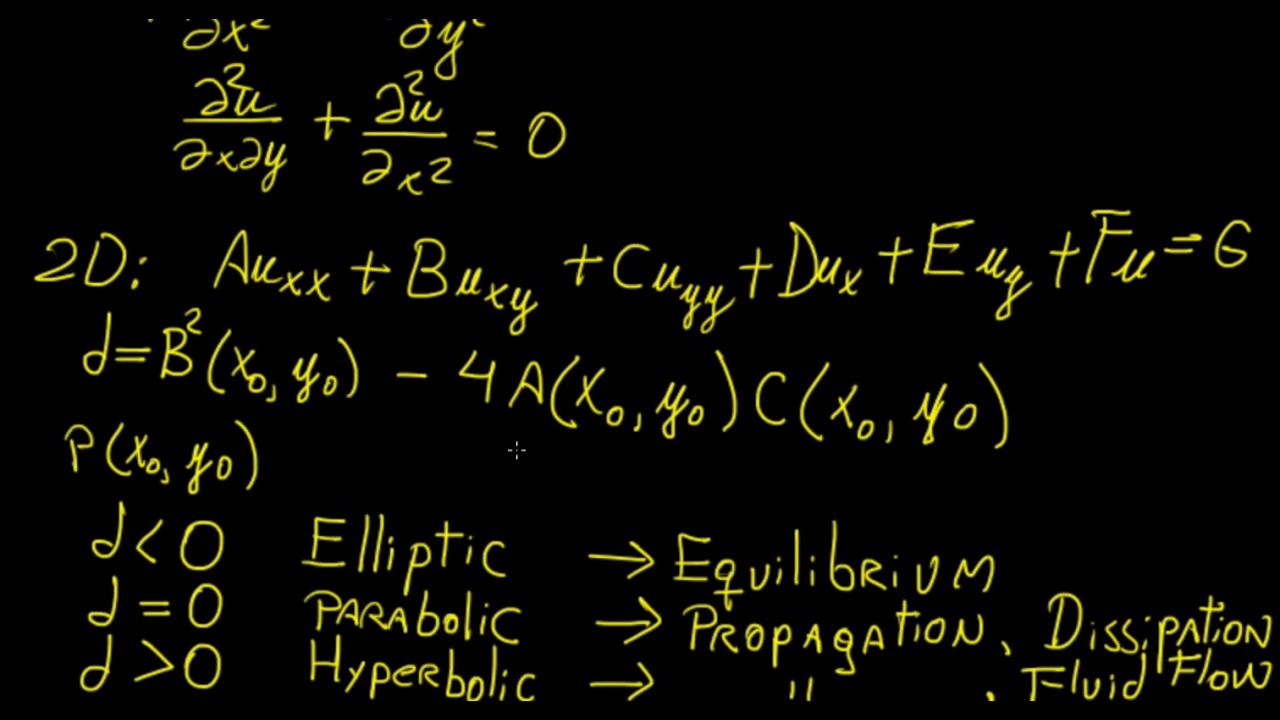 ∂x² ∂y²
∂²u/∂x∂y + ∂²u/∂x² = 0
2D: Auxx + Buxy + Cuyy + Dux + Euy + Fu = G
d = B²(x₀, y₀) - 4A(x₀, y₀) C(x₀, y₀)
P(x₀, y₀)
d < 0 Elliptic → Equilibrium
d = 0 Parabolic → Propagation, Dissipation
d > 0 Hyperbolic → " , Fluid Flow